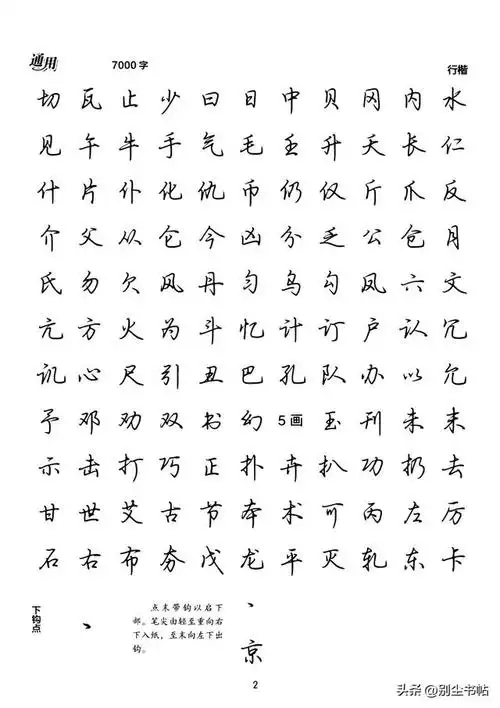 通用 7000字 行楷
切 瓦 止 少 曰 日 中 贝 冈 内 水
见 午 牛 手 气 毛 壬 升 夭 长 仁
什 片 仆 化 仇 币 仍 仅 斤 爪 反
介 父 从 仑 今 凶 分 乏 公 仓 月
氏 勿 欠 风 丹 匀 乌 勾 凤 六 文
亢 方 火 为 斗 忆 计 订 户 认 冗
讥 心 尺 引 丑 巴 孔 队 办 以 允
予 邓 劝 双 书 幻 5画 玉 刊 未 末
示 击 打 巧 正 扑 卉 扒 功 扔 去
甘 世 艾 古 节 本 术 可 丙 左 厉
石 右 布 夯 戊 龙 平 灭 轧 东 卡
下钩点
点末带钩以启下
部。笔尖由轻至重向右
下入纸，至末向左下出
钩。
京
2
头条@别尘书帖